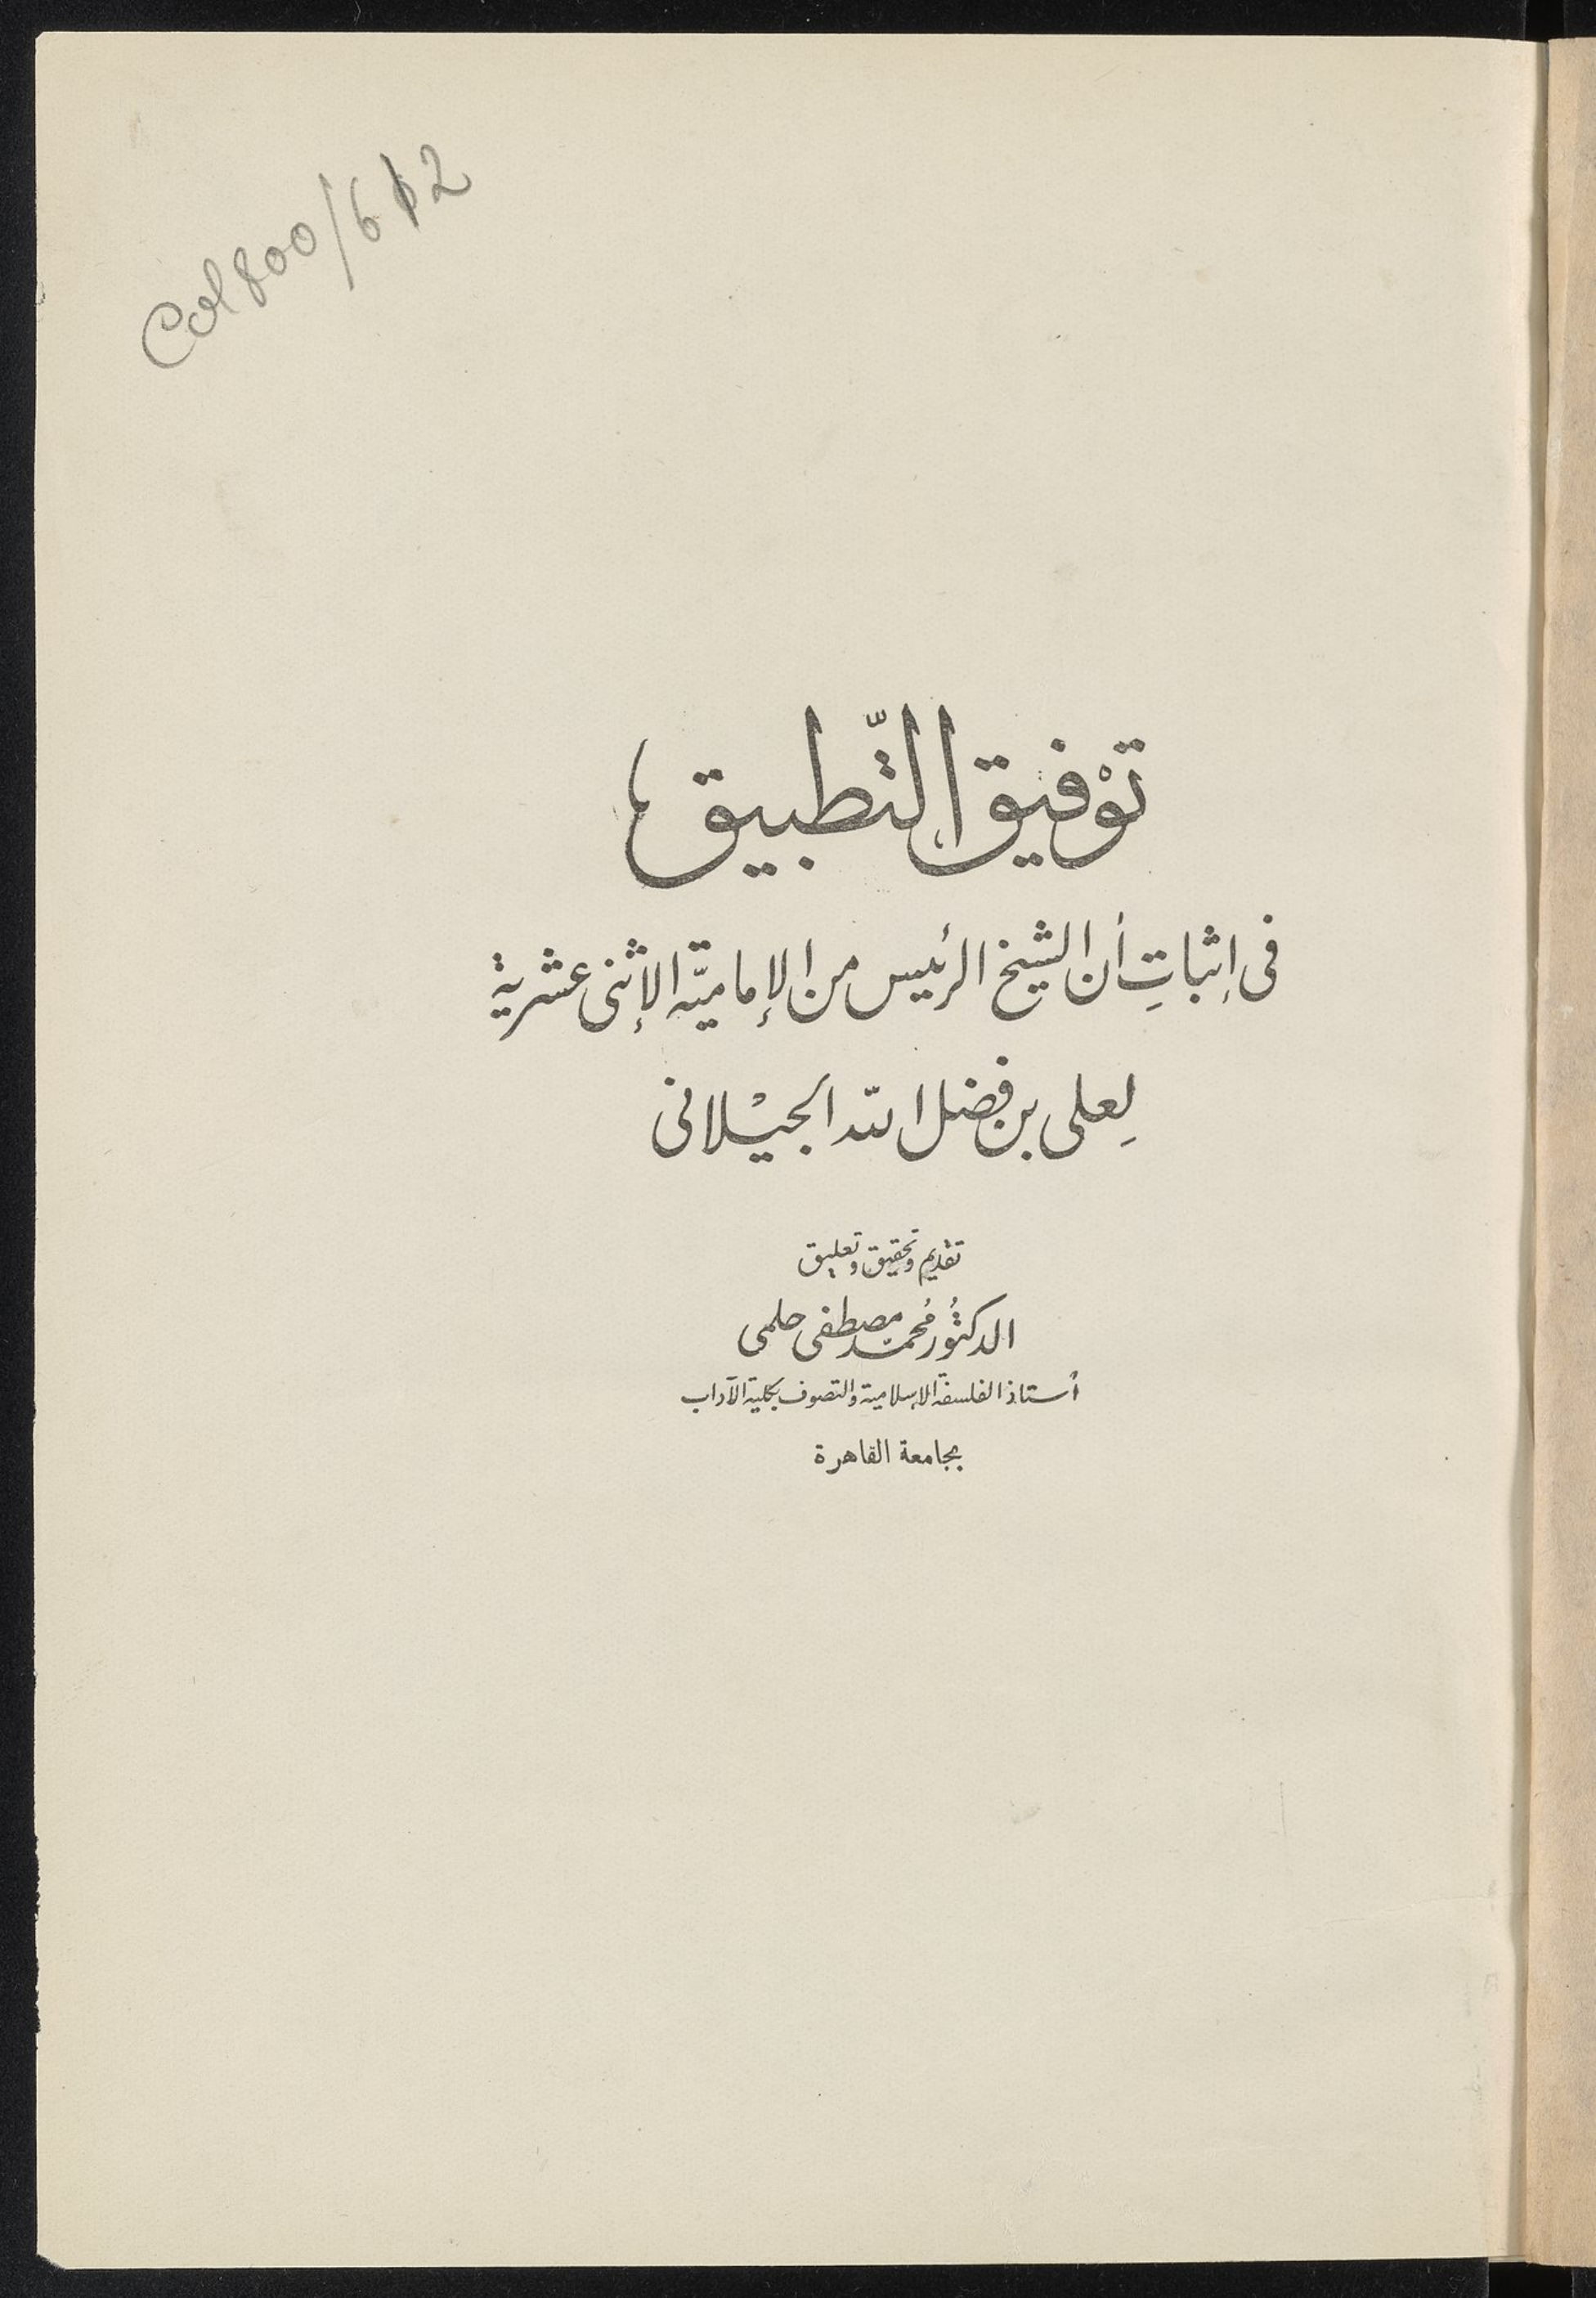 Col 800/612
توْفيق التّطبيق
فى إثباتِ أن الشيخ الرئيس من الإماميّة الإثنى عشرية
لِعلى بن فضل الله الجيْلانى
تقديم وتحقيق وتعليق
الدكتُور مُحمّد مصطفى حلمى
أستاذ الفلسفة الإسلامية والتصوف بكلية الآداب
بجامعة القاهرة